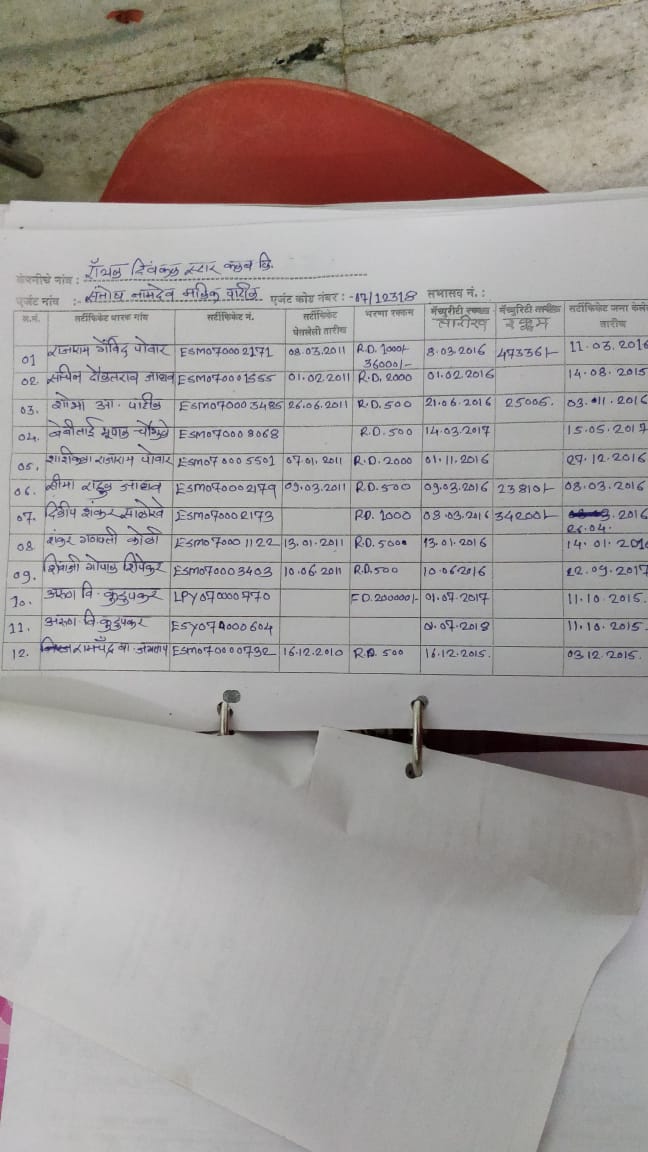 कंपनीचे नांव : रॉयल ट्विंकल स्टार क्लब लि.
एजंट नांव :- संतोष नामदेव पाटील एजंट कोड नंबर :- 07/12318 सभासद नं. :
अ.नं. सर्टीफिकेट धारक नांव सर्टीफिकेट नं. सर्टीफिकेट घेतलेली तारीख भरणा रक्कम मॅच्युरिटी रक्कम तारीख मॅच्युरिटी तारीख रक्कम सर्टीफिकेट जमा केले तारीख
01 राजाराम गोविंद पोवार ESM070002171 08.03.2011 R.D. 1000/- 36000/- 8.03.2016 47336/- 11.03.2016
02. सचिन दौलतराव जाधव ESM070001555 01.02.2011 R.D. 2000 01.02.2016 14.08.2015
03. शोभा आ. पाटील ESM070003485 26.06.2011 R.D. 500 21.06.2016 25005. 03.11.2016
04. बेबीताई भूपाल चौगुले ESM070008068 R.D. 500 14.03.2017 15.05.2017
05. शशिकला राजाराम पोवार ESM070005501 07.01.2011 R.D. 2000 01.11.2016 27.12.2016
06. सीमा राहुल जाधव ESM070002179 09.03.2011 R.D. 500 09.03.2016 23810/- 08.03.2016
07. दिलीप शंकर साळोखे ESM070002173 R.D. 1000 08.03.2016 34200/- 3.2016
26.04.
08. शंकर गणपती कोळी ESM070001122 13.01.2011 R.D. 5000 13.01.2016 14.01.2016
09. शिवाजी गोपाळ शिपेकर ESM070003403 10.06.2011 R.D. 500 10.06.2016 22.09.2017
10. अरुण वि. कुडुपकर LPY070000770 F.D. 200000/- 01.07.2017 11.10.2015.
11. अरुण वि. कुडुपकर ESY074000604 0.07.2018 11.10.2015.
12. रामचंद्र वा. जगताप ESM070000732 16.12.2010 R.D. 500 16.12.2015. 03.12.2015.